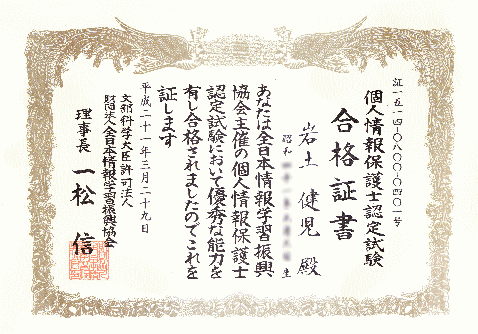 個人情報保護士認定試験
合格証書
岩土 健児 殿
昭和
生
あなたは全日本情報学習振興
協会主催の個人情報保護士
認定試験において優秀な能力を
有し合格されましたのでこれを
証します
平成二十一年三月二十九日
文部科学大臣許可法人
財団法人全日本情報学習振興協会
理事長 一松 信